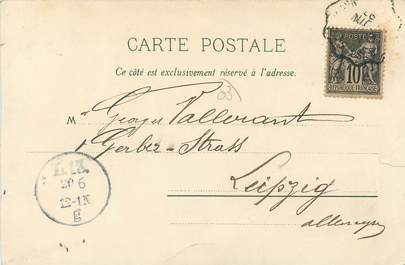 CARTE POSTALE
Ce côté est exclusivement réservé à l'adresse.
POSTE
10
RÉPUBLIQUE FRANÇAISE
63
M Georges Vallerant
1 Gerber-Strass
Leipzig
Allemagne
20 6
12-1N
g